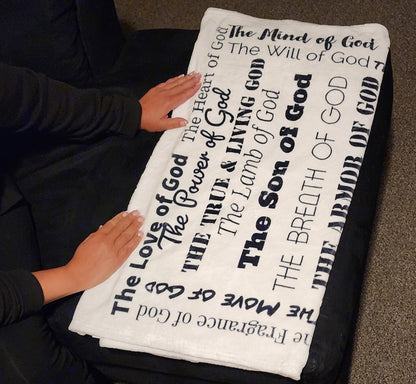 The Mind of God
The Will of God
The Heart of God
The Love of God
The Power of God
THE TRUE & LIVING GOD
The Lamb of God
The Son of God
THE BREATH OF GOD
THE ARMOR OF GOD
HE MOVE OF GOD
he Fragrance of God